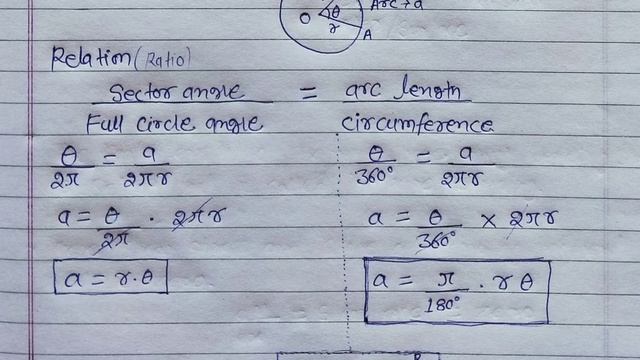 Arc → a
O θ
r A
Relation (Ratio)
Sector angle / Full circle angle = arc length / circumference
θ/2π = a/2πr
a = θ/2π · 2πr
a = r·θ
θ/360° = a/2πr
a = θ/360° × 2πr
a = π/180° · r θ